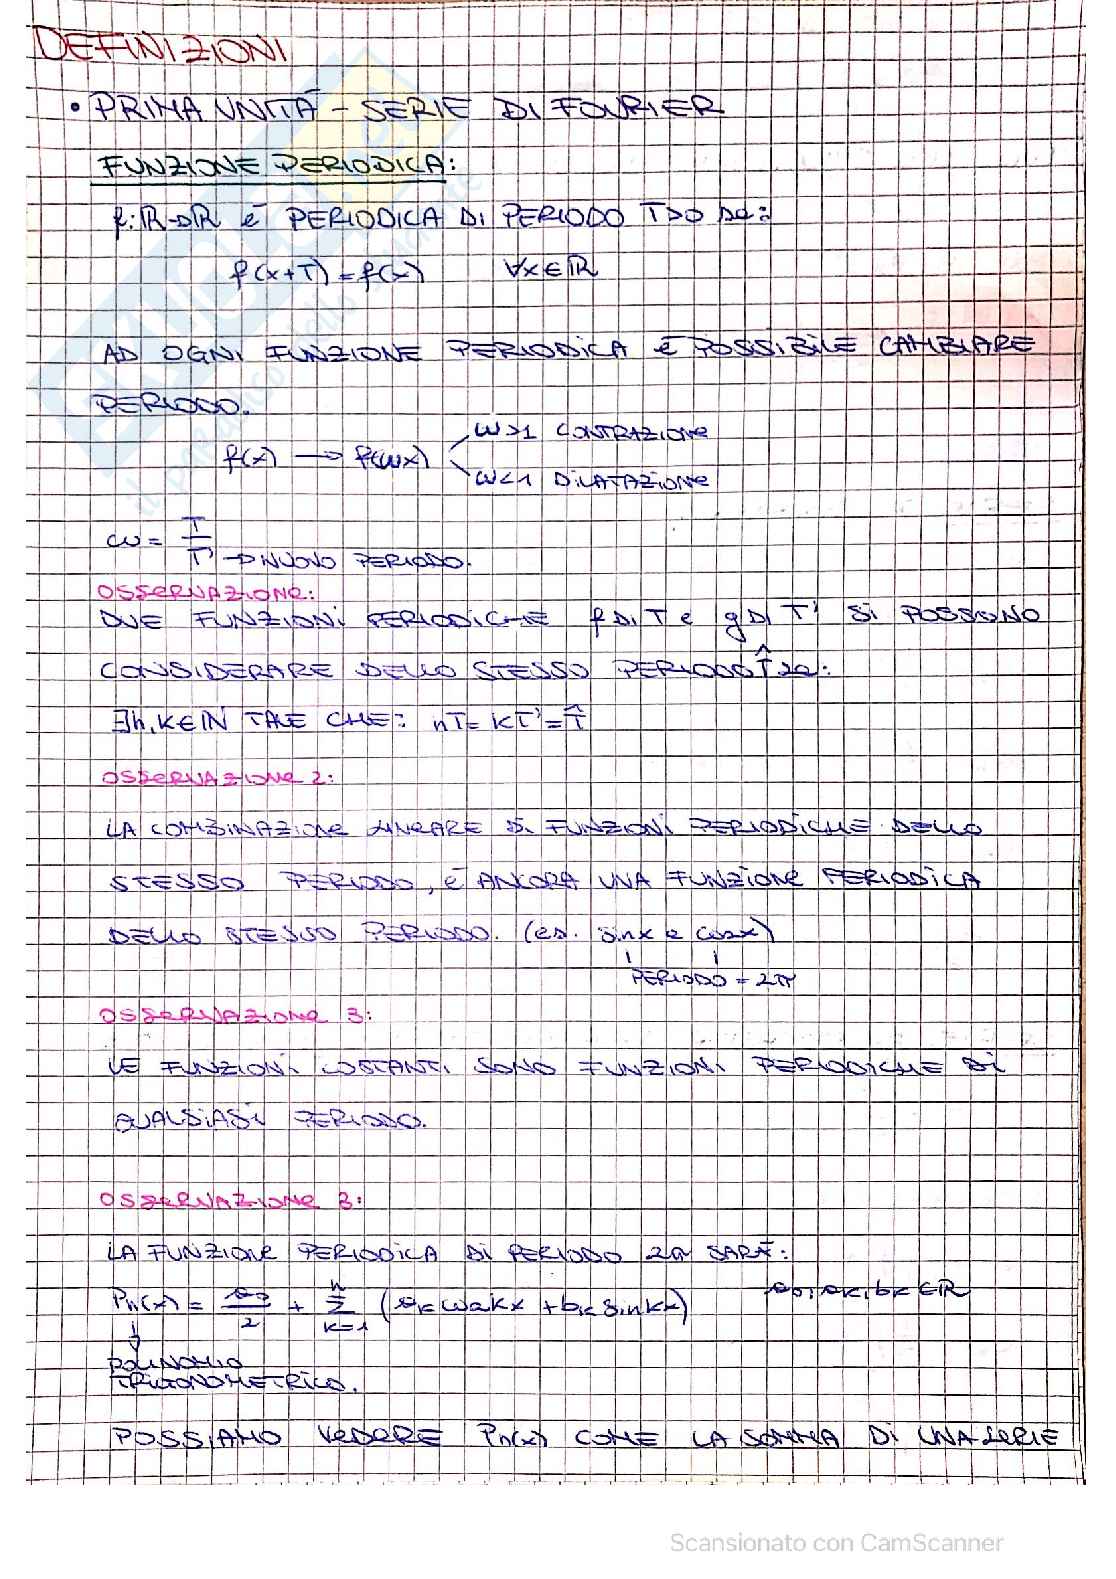 DEFINIZIONI
• PRIMA UNITÀ - SERIE DI FOURIER
FUNZIONE PERIODICA:
f: ℝ→ℝ È PERIODICA DI PERIODO T>0 se:
f(x+T) = f(x) ∀x∈ℝ
AD OGNI FUNZIONE PERIODICA È POSSIBILE CAMBIARE
PERIODO.
f(x) → f(ωx) ω>1 CONTRAZIONE
ω<1 DILATAZIONE
ω = T/T' → NUOVO PERIODO.
OSSERVAZIONE:
DUE FUNZIONI PERIODICHE f DI T e g DI T' SI POSSONO
CONSIDERARE DELLO STESSO PERIODO T̂ se:
∃h,K∈ℕ TALE CHE: nT = KT' = T̂
OSSERVAZIONE 2:
LA COMBINAZIONE LINEARE DI FUNZIONI PERIODICHE DELLO
STESSO PERIODO, È ANCORA UNA FUNZIONE PERIODICA
DELLO STESSO PERIODO. (es. sinx e cosx)
PERIODO = 2π
OSSERVAZIONE 3:
LE FUNZIONI COSTANTI SONO FUNZIONI PERIODICHE DI
QUALSIASI PERIODO.
OSSERVAZIONE 3:
LA FUNZIONE PERIODICA DI PERIODO 2π SARÀ:
Pn(x) = a₀/2 + Σ_{K=1}^{n} (aₖ cosKx + bₖ sinKx) a₀, aₖ, bₖ ∈ℝ
POLINOMIO
TRIGONOMETRICO.
POSSIAMO VEDERE Pn(x) COME LA SOMMA DI UNA SERIE
Scansionato con CamScanner